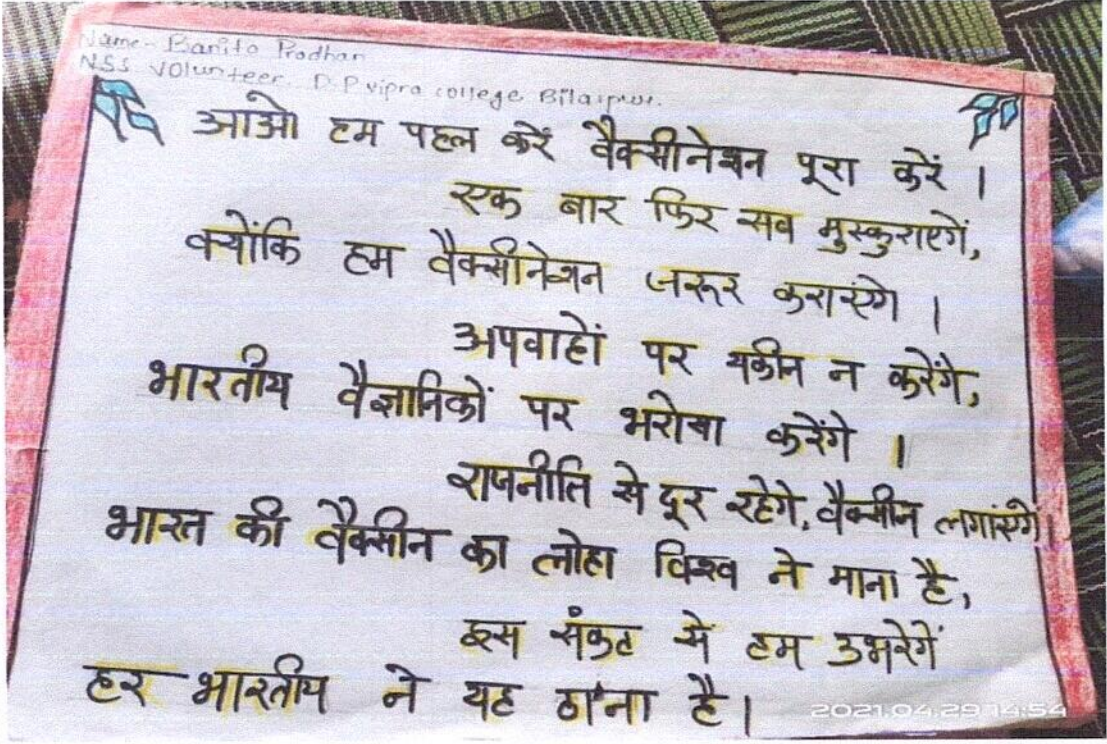 Name- Banita Pradhan
NSS Volunteer. D.P vipra college, Bilaspur.
आओ हम पहल करें वैक्सीनेशन पूरा करें ।
एक बार फिर सब मुस्कुराएगें,
क्योंकि हम वैक्सीनेशन जरूर कराएंगे ।
अपवाहों पर यकीन न करेंगे,
भारतीय वैज्ञानिकों पर भरोसा करेंगे ।
राजनीति से दूर रहेगे, वैक्सीन लगांएगे।
भारत की वैक्सीन का लोहा विश्व ने माना है,
इस संकट से हम उभरेगें
हर भारतीय ने यह ठाना है।
2021.04.29 14:54